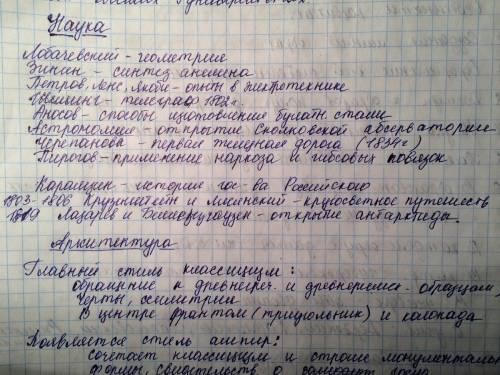 Наука
Лобачевский - геометрие
Зинин - синтез анелина
Петров, Ленс, Якоби - опыты в электротехнике
- телеграф
Аносов - способы изготовления булатн. стали
Астрономия - открытие обсерватории
Черепанова - первая железная дорога (1834г)
Пирогов - применение наркоза и гибсовых повязок
Карамзин - история гос-ва Российского
1803-1806 Крузинштейн и Лисянский - кругосветное путешеств
1819 Лазарев и - открытие антарктиды.
Архитектура
Главный стиль классицизм:
обращение к древнегреч. и образцам.
Черты, симметрии
В центре франтом (триугольник) и калонада
Появляется стиль ампир:
сочетает классицизм и строгие монументаль
формы, о